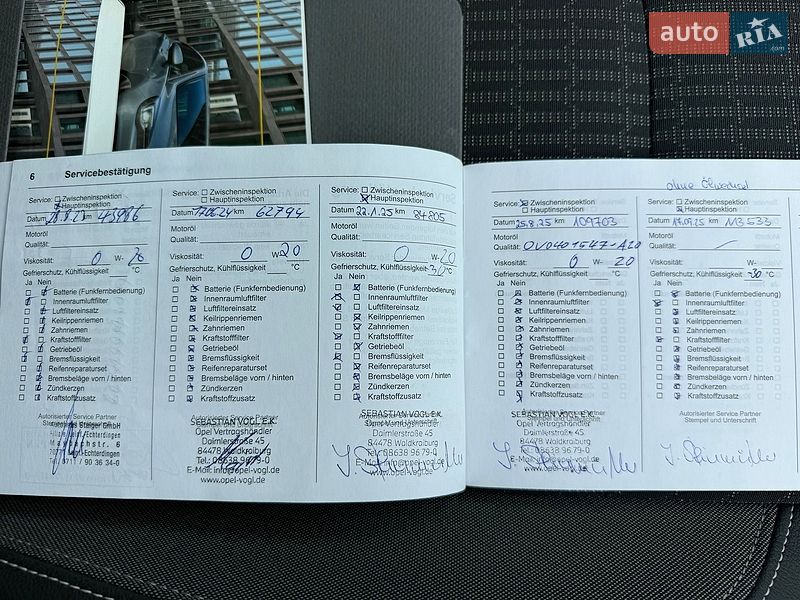 auto RIA .com
6 Servicebestätigung
Service: Zwischeninspektion
Hauptinspektion
Datum 28.8.23 km 43986
Motoröl
Qualität:
Viskosität: 0 W-20
Gefrierschutz, Kühlflüssigkeit °C
Ja Nein
Batterie (Funkfernbedienung)
Innenraumluftfilter
Luftfiltereinsatz
Keilrippenriemen
Zahnriemen
Kraftstofffilter
Getriebeöl
Bremsflüssigkeit
Reifenreparaturset
Bremsbeläge vorn / hinten
Zündkerzen
Kraftstoffzusatz
Autorisierter Service Partner
Staiger GmbH
-Echterdingen
Tel. 0711 / 90 36 34-0
Service: Zwischeninspektion
Hauptinspektion
Datum 17.06.24 km 62794
Motoröl
Qualität:
Viskosität: 0 W-20
Gefrierschutz, Kühlflüssigkeit °C
Ja Nein
Batterie (Funkfernbedienung)
Innenraumluftfilter
Luftfiltereinsatz
Keilrippenriemen
Zahnriemen
Kraftstofffilter
Getriebeöl
Bremsflüssigkeit
Reifenreparaturset
Bremsbeläge vorn / hinten
Zündkerzen
Kraftstoffzusatz
Autorisierter Service Partner
SEBASTIAN VOGL E.K.
Opel Vertragshändler
Daimlerstraße 45
84478 Waldkraiburg
Tel.: 08638 9679-0
E-Mail: info@opel-vogl.de
www.opel-vogl.de
Service: Zwischeninspektion
Hauptinspektion
Datum 22.1.25 km 84805
Motoröl
Qualität:
Viskosität: 0 W-20
Gefrierschutz, Kühlflüssigkeit -30 °C
Ja Nein
Batterie (Funkfernbedienung)
Innenraumluftfilter
Luftfiltereinsatz
Keilrippenriemen
Zahnriemen
Kraftstofffilter
Getriebeöl
Bremsflüssigkeit
Reifenreparaturset
Bremsbeläge vorn / hinten
Zündkerzen
Kraftstoffzusatz
SEBASTIAN VOGL E.K.
Opel Vertragshändler
Daimlerstraße 45
84478 Waldkraiburg
Tel.: 08638 9679-0
E-Mail: info@opel-vogl.de
www.opel-vogl.de
Service: Zwischeninspektion
Hauptinspektion
Datum 25.8.25 km 109703
Motoröl
Qualität: OV0401547-A20
Viskosität: 0 W- 20
Gefrierschutz, Kühlflüssigkeit °C
Ja Nein
Batterie (Funkfernbedienung)
Innenraumluftfilter
Luftfiltereinsatz
Keilrippenriemen
Zahnriemen
Kraftstofffilter
Getriebeöl
Bremsflüssigkeit
Reifenreparaturset
Bremsbeläge vorn / hinten
Zündkerzen
Kraftstoffzusatz
SEBASTIAN VOGL E.K.
Opel Vertragshändler
Daimlerstraße 45
84478 Waldkraiburg
Tel.: 08638 9679-0
E-Mail: info@opel-vogl.de
www.opel-vogl.de
ohne Ölwechsel
Service: Zwischeninspektion
Hauptinspektion
Datum 17.09.25 km 113533
Motoröl
Qualität:
Viskosität: W-
Gefrierschutz, Kühlflüssigkeit -30 °C
Ja Nein
Batterie (Funkfernbedienung)
Innenraumluftfilter
Luftfiltereinsatz
Keilrippenriemen
Zahnriemen
Kraftstofffilter
Getriebeöl
Bremsflüssigkeit
Reifenreparaturset
Bremsbeläge vorn / hinten
Zündkerzen
Kraftstoffzusatz
Autorisierter Service Partner
Stempel und Unterschrift